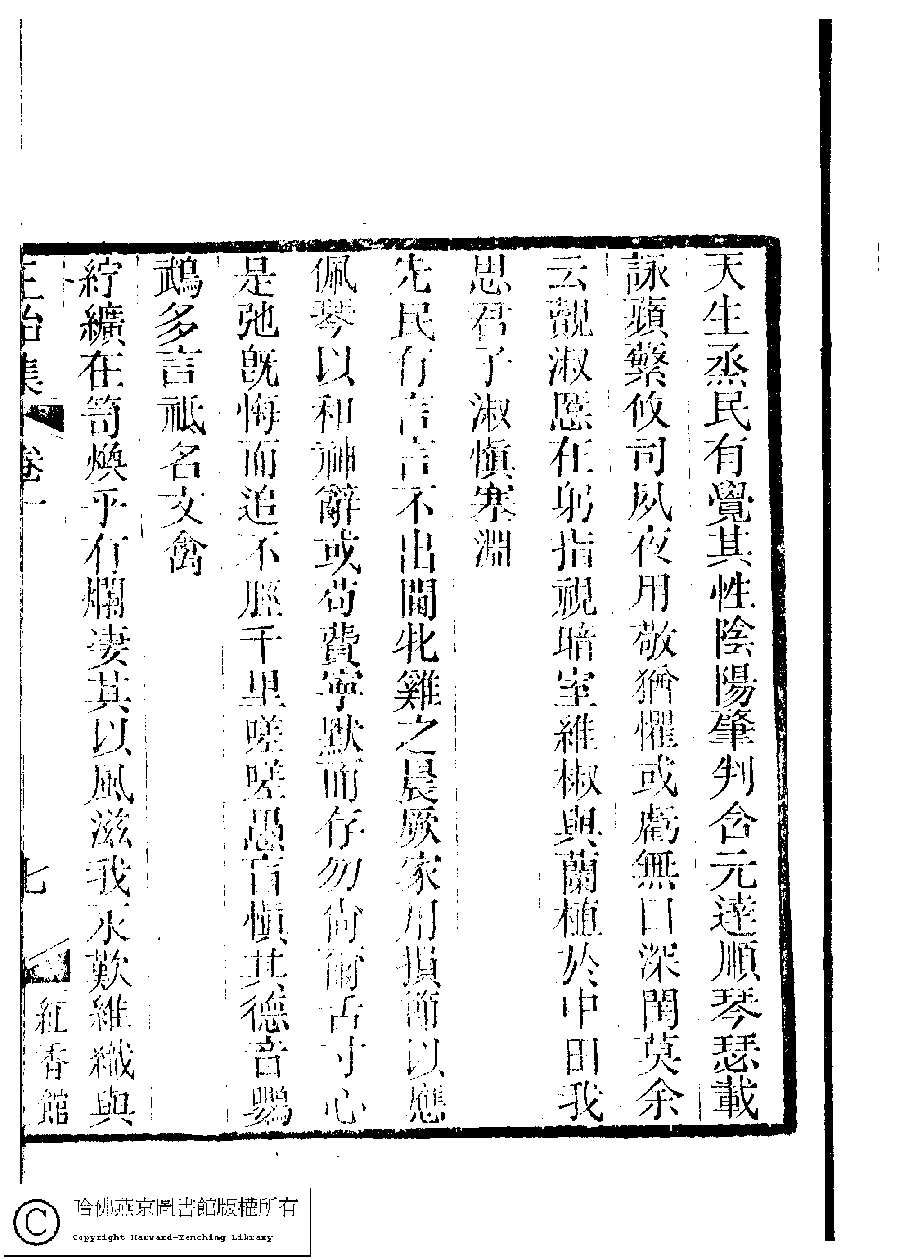 天生烝民有覺其性陰陽肇判含元達順琴瑟載
詠蘋蘩攸司夙夜用敬猶懼或虧無曰深閨莫余
云覯淑慝在躬指視暗室維椒與蘭植於中田我
思君子淑愼塞淵
先民有言言不出閫牝雞之晨厥家用損節以應
佩琴以和神辭或苟費寧默而存勿尙爾舌寸心
是弛旣悔而追不脛千里嗟嗟愚盲愼其德音鸚
鵡多言祗名文禽
紵纊在笥煥乎有爛凄其以風滋我永歎維織與
正始集 卷一 七 紅香館
哈佛燕京圖書館版權所有
Copyright Harvard-Yenching Library